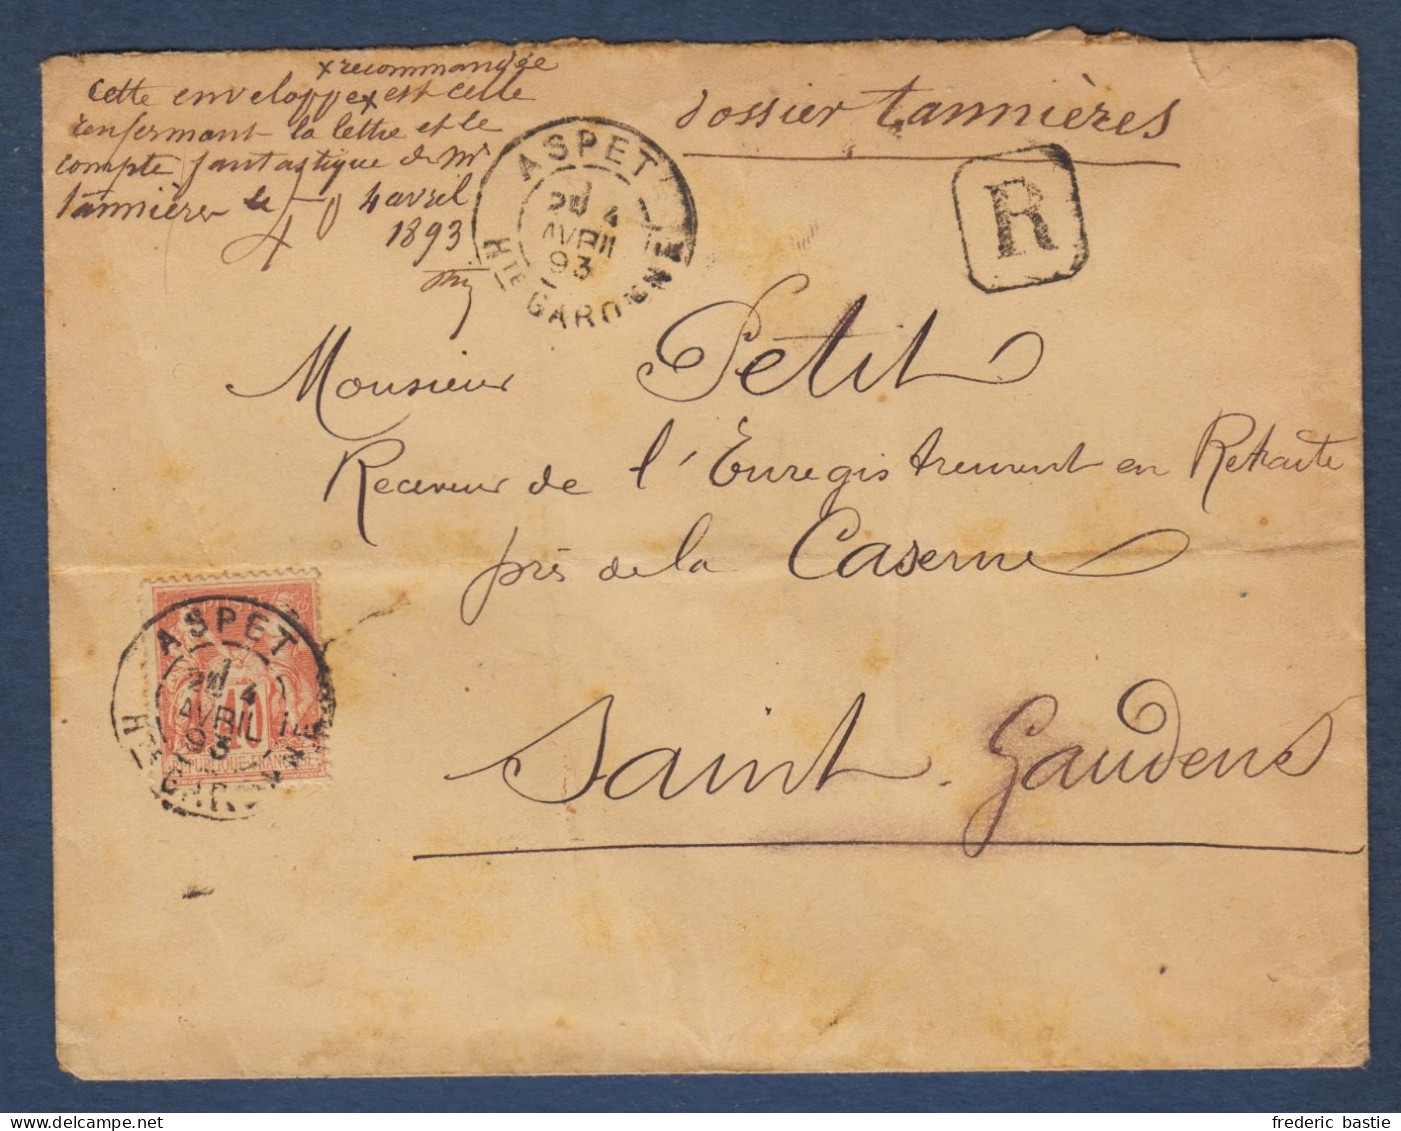 x recommandée
Cette enveloppe x est celle
renfermant la lettre et le
compte fantastique de Mr
tannières le 4 avril
1893
dossier tannières
ASPET
4
AVRIL
93
Hte GARONNE
R
Monsieur Petit
Receveur de l'Enregistrement en Retraite
près de la Caserne
Saint-Gaudens
ASPET
4
AVRIL
93
40
REPUBLIQUE FRANCAISE
frederic bastie